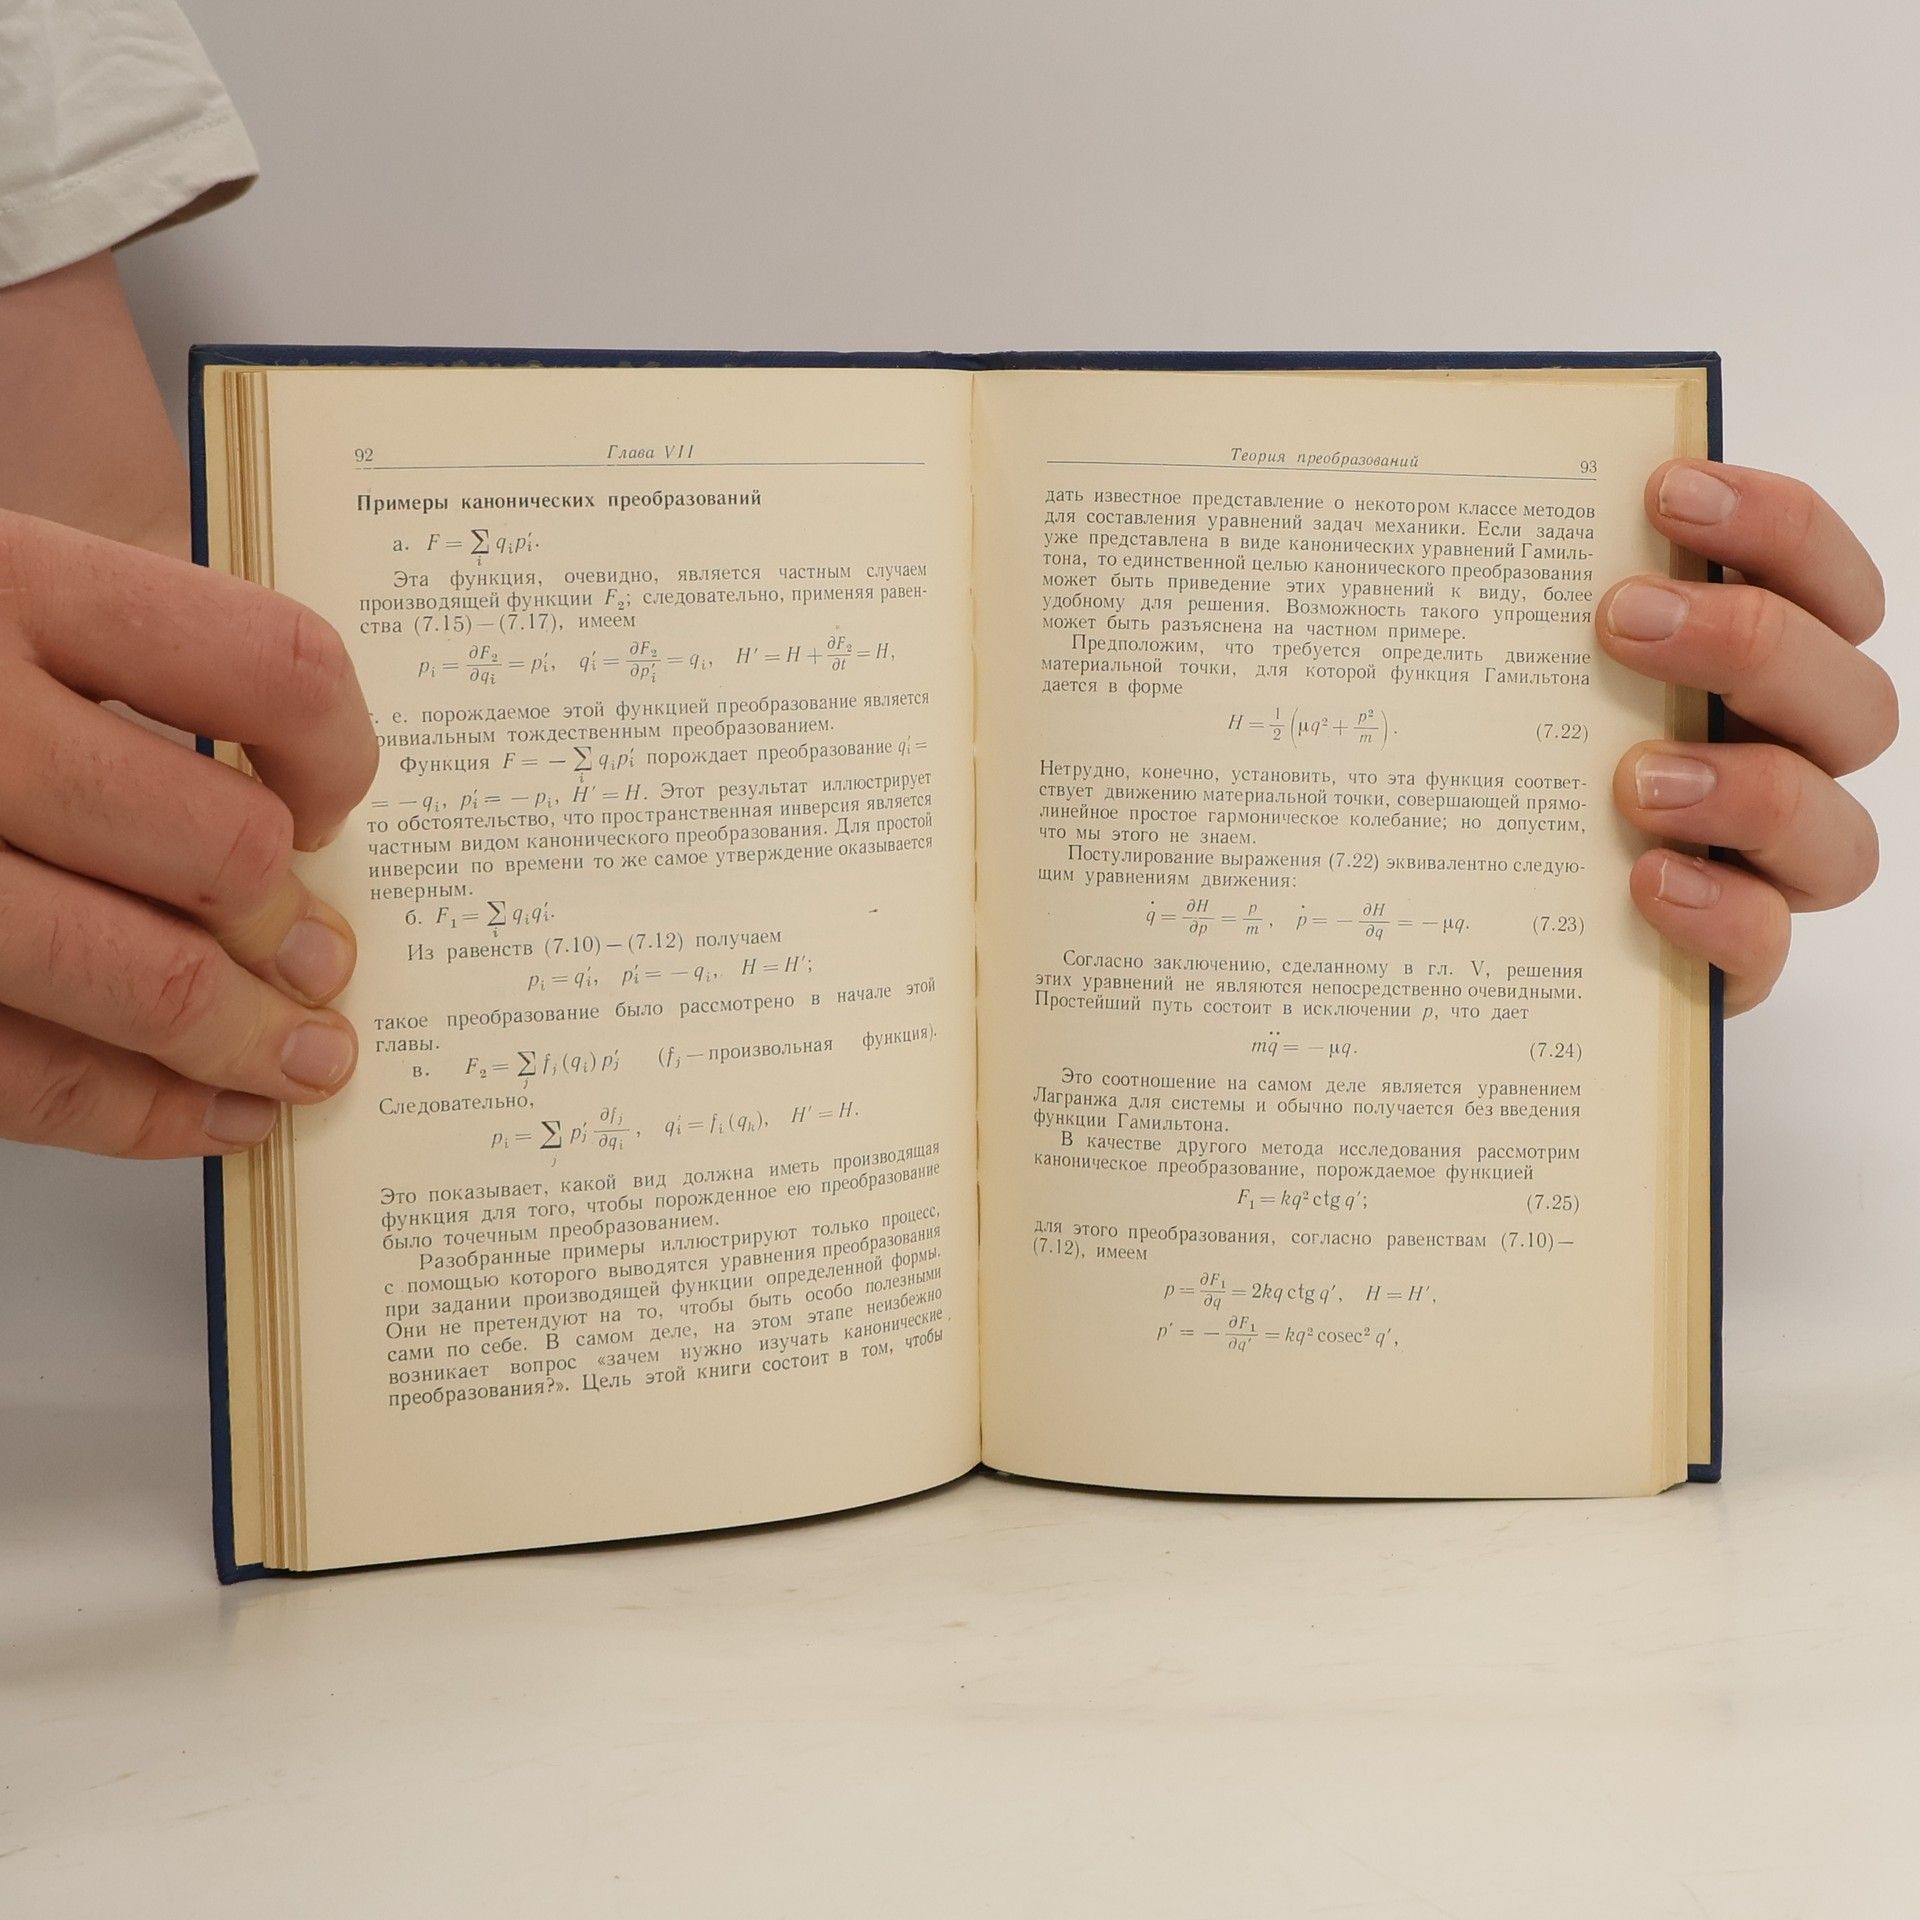 92 Глава VII
Примеры канонических преобразований
а. F = ∑ᵢ qᵢp′ᵢ.
Эта функция, очевидно, является частным случаем
производящей функции F₂; следовательно, применяя равен-
ства (7.15) — (7.17), имеем
pᵢ = ∂F₂/∂qᵢ = p′ᵢ, q′ᵢ = ∂F₂/∂p′ᵢ = qᵢ, H′ = H + ∂F₂/∂t = H,
е. порождаемое этой функцией преобразование является
тождественным преобразованием.
Функция F = — ∑ᵢ qᵢp′ᵢ порождает преобразование q′ᵢ =
= — qᵢ, p′ᵢ = — pᵢ, H′ = H. Этот результат иллюстрирует
то обстоятельство, что пространственная инверсия является
частным видом канонического преобразования. Для простой
инверсии по времени то же самое утверждение оказывается
неверным.
б. F₁ = ∑ᵢ qᵢq′ᵢ.
Из равенств (7.10) — (7.12) получаем
pᵢ = q′ᵢ, p′ᵢ = — qᵢ, H = H′;
такое преобразование было рассмотрено в начале этой
главы.
в. F₂ = ∑ⱼ fⱼ (qᵢ) p′ⱼ (fⱼ — произвольная функция).
Следовательно,
pᵢ = ∑ⱼ p′ⱼ ∂fⱼ/∂qᵢ, q′ᵢ = fᵢ (qₖ), H′ = H.
Это показывает, какой вид должна иметь производящая
функция для того, чтобы порожденное ею преобразование
было точечным преобразованием.
Разобранные примеры иллюстрируют только процесс,
с помощью которого выводятся уравнения преобразования
при задании производящей функции определенной формы.
Они не претендуют на то, чтобы быть особо полезными
сами по себе. В самом деле, на этом этапе неизбежно
возникает вопрос «зачем нужно изучать канонические
преобразования?». Цель этой книги состоит в том, чтобы
Теория преобразований 93
дать известное представление о некотором классе методов
для составления уравнений задач механики. Если задача
уже представлена в виде канонических уравнений Гамиль-
тона, то единственной целью канонического преобразования
может быть приведение этих уравнений к виду, более
удобному для решения. Возможность такого упрощения
может быть разъяснена на частном примере.
Предположим, что требуется определить движение
материальной точки, для которой функция Гамильтона
дается в форме
H = 1/2 (μq² + p²/m). (7.22)
Нетрудно, конечно, установить, что эта функция соответ-
ствует движению материальной точки, совершающей прямо-
линейное простое гармоническое колебание; но допустим,
что мы этого не знаем.
Постулирование выражения (7.22) эквивалентно следую-
щим уравнениям движения:
q̇ = ∂H/∂p = p/m, ṗ = — ∂H/∂q = — μq. (7.23)
Согласно заключению, сделанному в гл. V, решения
этих уравнений не являются непосредственно очевидными.
Простейший путь состоит в исключении p, что дает
mq̈ = — μq. (7.24)
Это соотношение на самом деле является уравнением
Лагранжа для системы и обычно получается без введения
функции Гамильтона.
В качестве другого метода исследования рассмотрим
каноническое преобразование, порождаемое функцией
F₁ = kq² ctg q′; (7.25)
для этого преобразования, согласно равенствам (7.10) —
(7.12), имеем
p = ∂F₁/∂q = 2kq ctg q′, H = H′,
p′ = — ∂F₁/∂q′ = kq² cosec² q′,